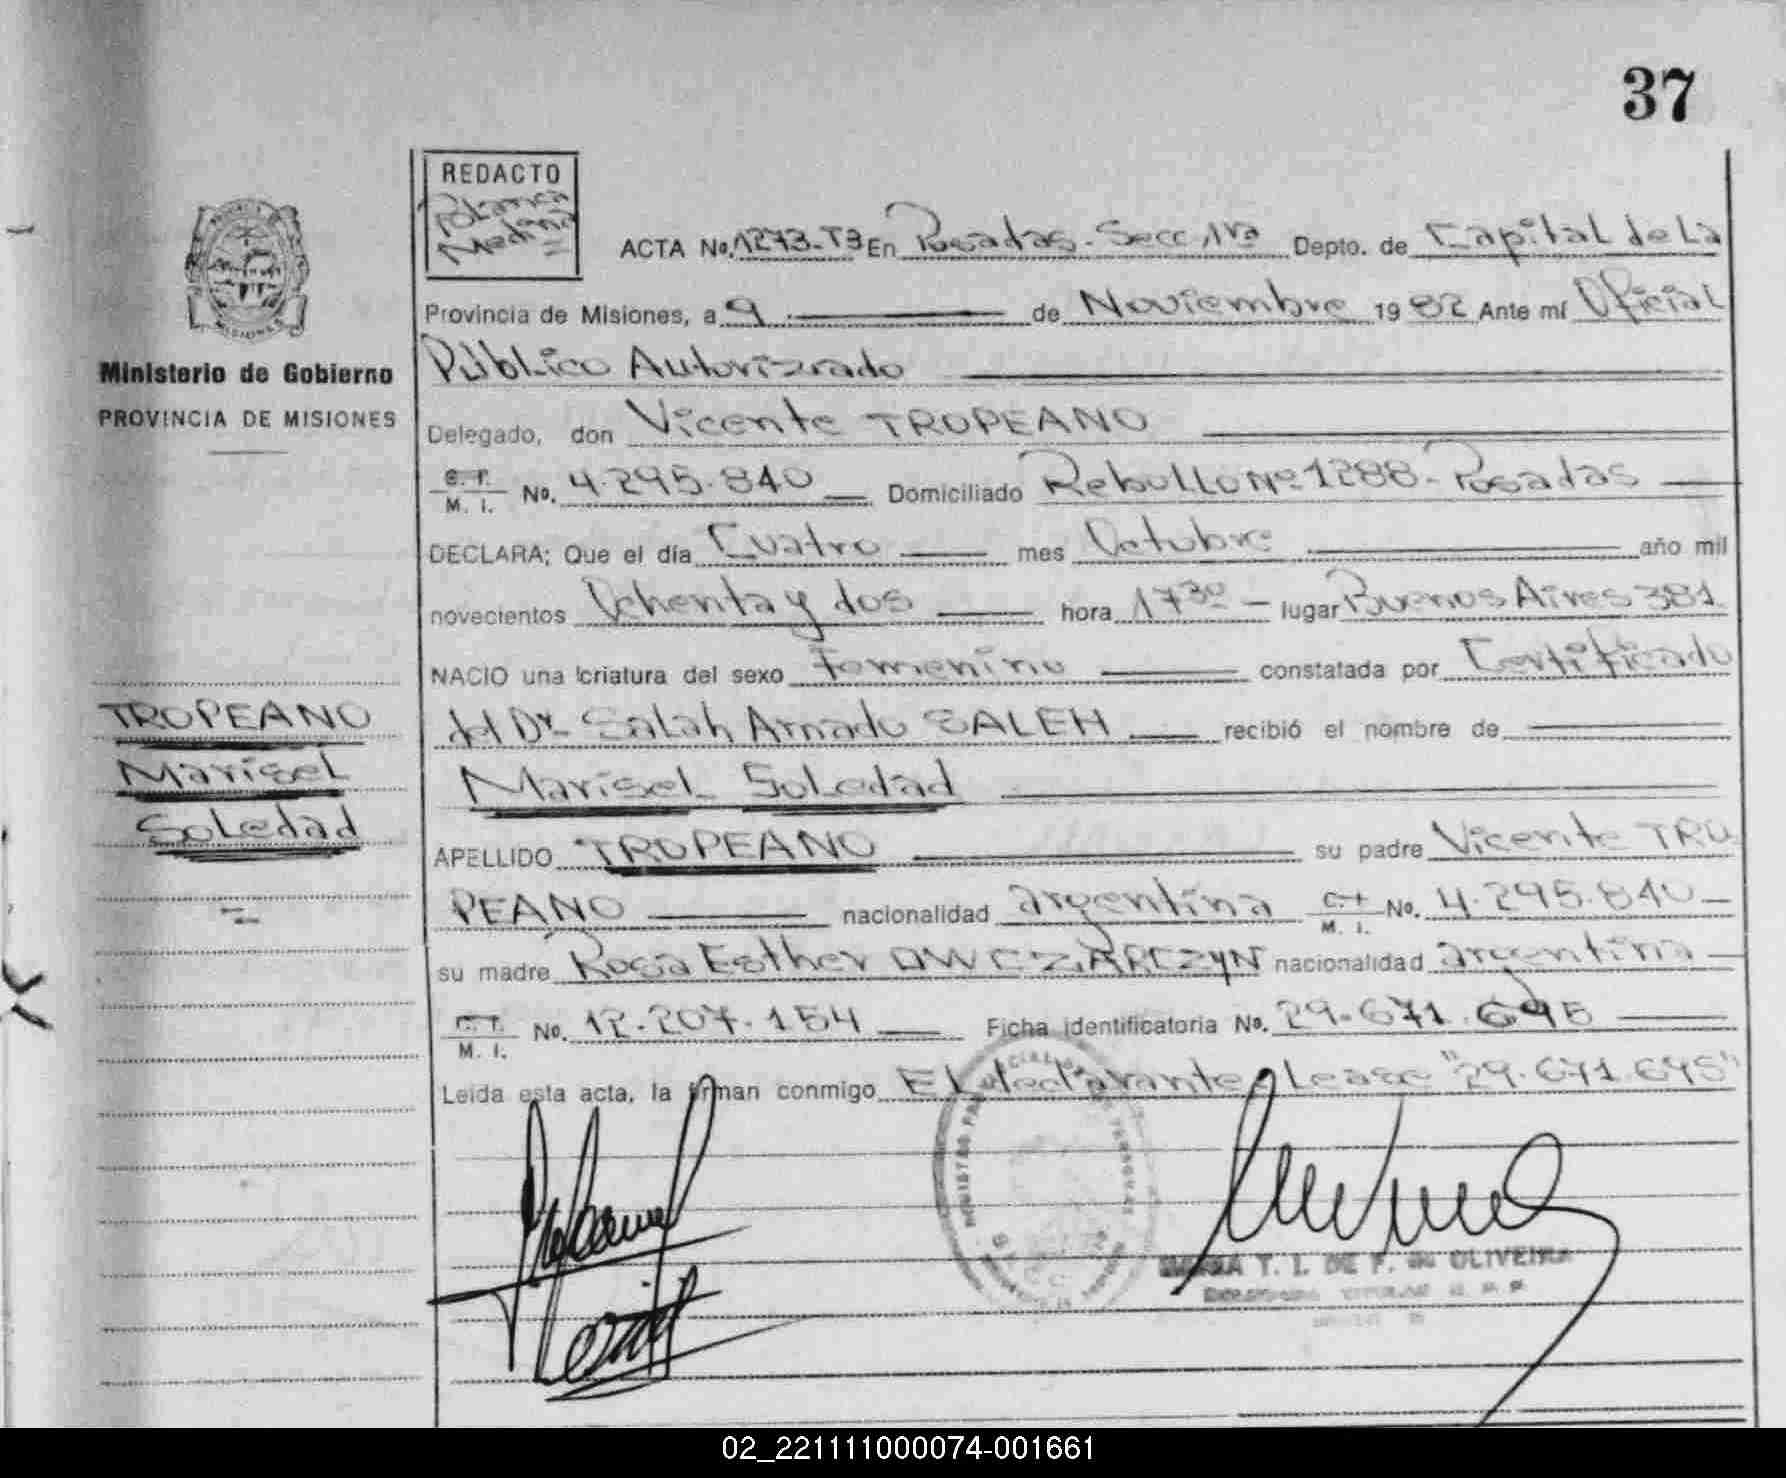 37
REDACTO
Medina
ACTA No. 1273-T3 En Posadas - Secc. 1ra Depto. de Capital de La
Provincia de Misiones, a 9 de Noviembre 1982 Ante mí Oficial
Público Autorizado
Delegado, don Vicente TROPEANO
C. I. M. I. No. 4.295.840 Domiciliado Rebullo Nº 1288 - Posadas
DECLARA; Que el día Cuatro mes Octubre año mil
novecientos Ochenta y dos hora 17 30 lugar Buenos Aires 381
NACIO una criatura del sexo Femenino constatada por Certificado
del Dr. Salah Amado SALEH recibió el nombre de
Marisel Soledad
APELLIDO TROPEANO su padre Vicente TRO
PEANO nacionalidad argentina C. I. M. I. No. 4.295.840
su madre Rosa Esther OWCZARCZYN nacionalidad argentina
C. I. M. I. No. 12.207.154 Ficha identificatoria No. 29.671.695
Leída esta acta, la firman conmigo El declarante. Lease "29.671.695"
MISIONES
Ministerio de Gobierno
PROVINCIA DE MISIONES
TROPEANO
Marisel
Soledad
T. I. DE F. de OLIVEIRA
02_221111000074-001661